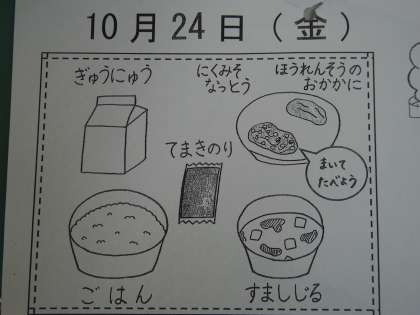 10月24日（金）
ぎゅうにゅう
にくみそ
なっとう
ほうれんそうの
おかかに
てまきのり
まいて
たべよう
ごはん
すましじる